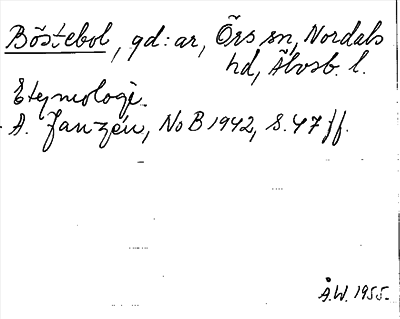 Böstebol, gd:ar, Örs sn, Nordals
hd, Älvsb. l.
Etymologi.
A. Janzén, NoB 1942, s. 47 ff.
Å.W. 1955.